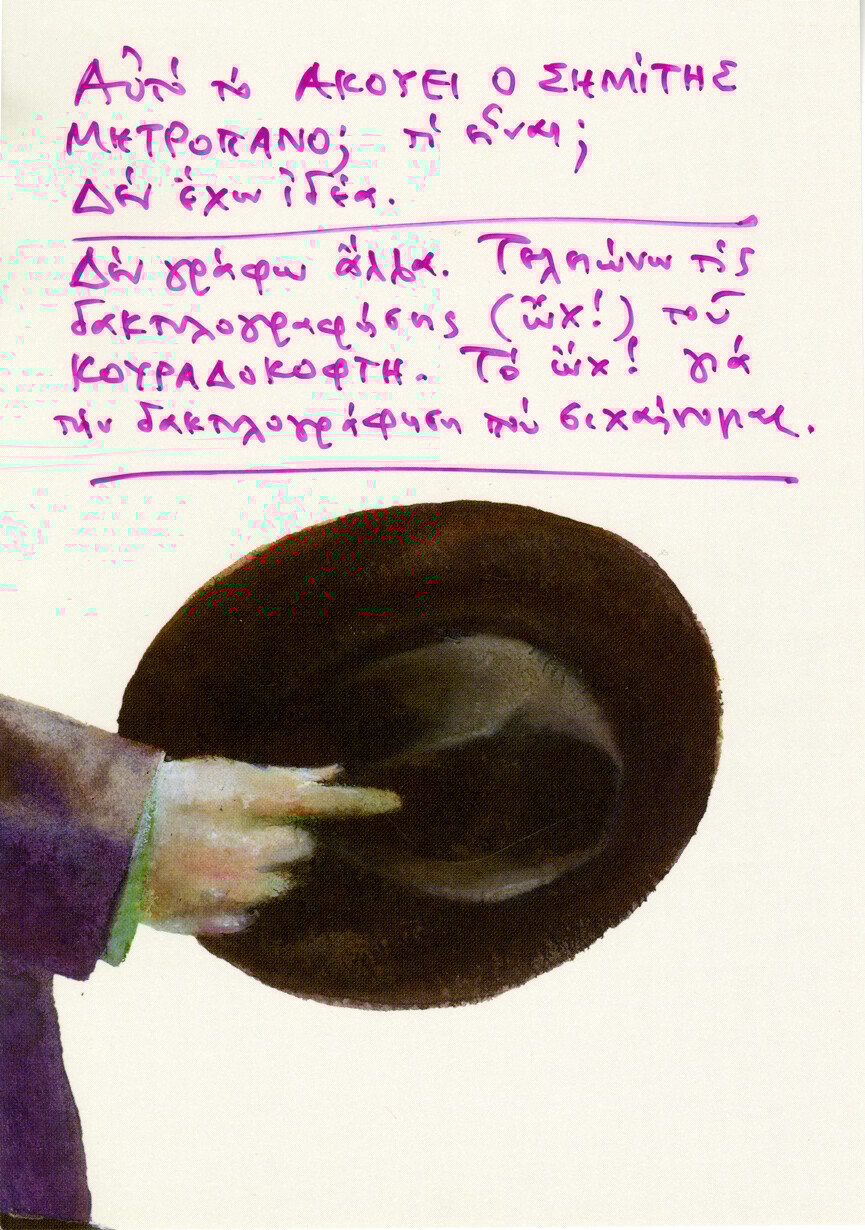 Αὐτὸ τὸ ΑΚΟΥΕΙ Ο ΣΗΜΙΤΗΣ
ΜΗΤΡΟΠΑΝΟ; τί εἶναι;
Δέν ἔχω ἰδέα.
Δέν γράφω ἄλλα. Τελειώνω τίς
δακτυλογραφήσεις (ὤχ!) τοῦ
ΚΟΥΡΑΔΟΚΟΦΤΗ. Τό ὤχ! γιά
τήν δακτυλογράφηση πού σιχαίνομαι.